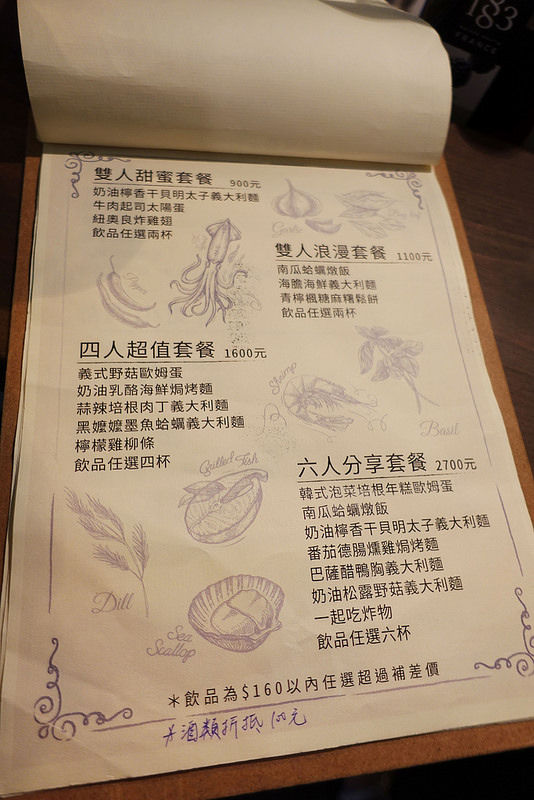 183
FRANCE
雙人甜蜜套餐 900元
奶油檸香干貝明太子義大利麵
牛肉起司太陽蛋
紐奧良炸雞翅
飲品任選兩杯
Garlic
Bay leaf
雙人浪漫套餐 1100元
南瓜蛤蠣燉飯
海膽海鮮義大利麵
青檸楓糖麻糬鬆餅
飲品任選兩杯
四人超值套餐 1600元
義式野菇歐姆蛋
奶油乳酪海鮮焗烤麵
蒜辣培根肉丁義大利麵
黑嬤嬤墨魚蛤蠣義大利麵
檸檬雞柳條
飲品任選四杯
Shrimp
Basil
Grilled Fish
六人分享套餐 2700元
韓式泡菜培根年糕歐姆蛋
南瓜蛤蠣燉飯
奶油檸香干貝明太子義大利麵
番茄德腸燻雞焗烤麵
巴薩醋鴨胸義大利麵
奶油松露野菇義大利麵
一起吃炸物
飲品任選六杯
Dill
Sea
Scallop
＊飲品為$160以內任選超過補差價
＊酒類折抵100元